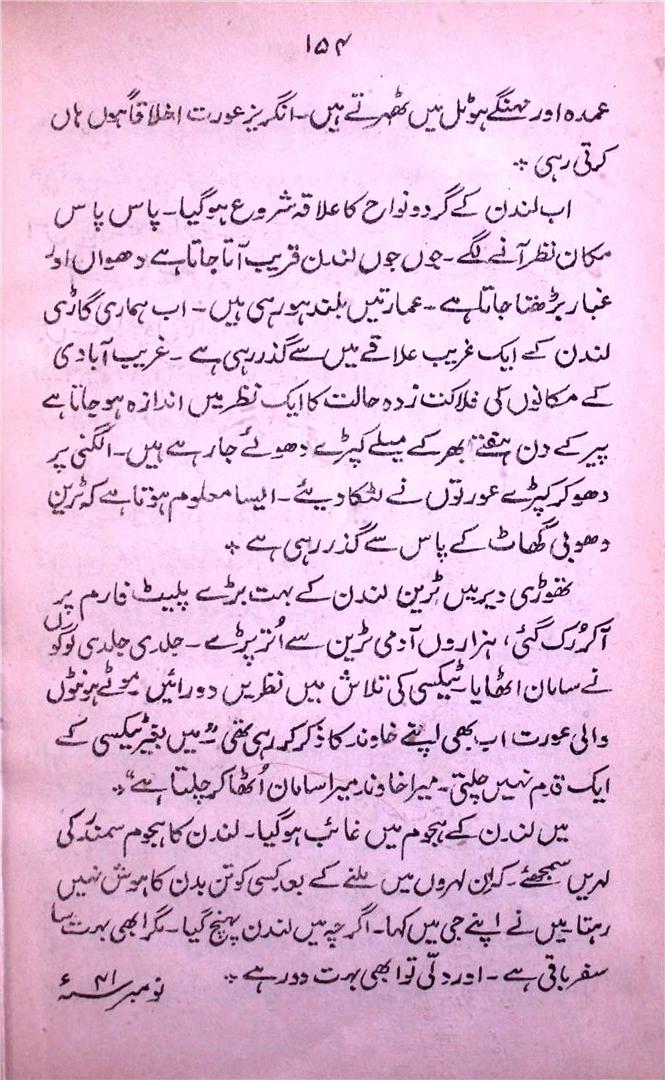 ۱۵۴
عمدہ اور مہنگے ہوٹل میں ٹھہرتے ہیں۔ انگریز عورت اخلاقاً ہوں ہاں
کرتی رہی ٭
اب لندن کے گرد و نواح کا علاقہ شروع ہوگیا۔ پاس پاس
مکان نظر آنے لگے۔ جوں جوں لندن قریب آتا جاتا ہے دھواں اور
غبار بڑھتا جاتا ہے۔ عمارتیں بلند ہو رہی ہیں۔ اب ہماری گاڑی
لندن کے ایک غریب علاقے میں سے گذر رہی ہے۔ غریب آبادی
کے مکانوں کی فلاکت زدہ حالت کا ایک نظر میں اندازہ ہو جاتا ہے
پیر کے دن ہفتے بھر کے میلے کپڑے دھوئے جا رہے ہیں۔ الگنی پر
دھو کر کپڑے عورتوں نے لٹکا دیئے۔ ایسا معلوم ہوتا ہے کہ ٹرین
دھوبی گھاٹ کے پاس سے گذر رہی ہے ٭
تھوڑی دیر میں ٹرین لندن کے بہت بڑے پلیٹ فارم پر
آکر رُک گئی، ہزاروں آدمی ٹرین سے اُتر پڑے۔ جلدی جلدی لوگوں
نے سامان اٹھایا۔ ٹیکسی کی تلاش میں نظریں دورائیں موٹے ہونٹوں
والی عورت اب بھی اپنے خاوند کا ذکر کر رہی تھی "میں بغیر ٹیکسی کے
ایک قدم نہیں چلتی۔ میرا خاوند میرا سامان اُٹھا کر چلتا ہے"٭
میں لندن کے ہجوم میں غائب ہوگیا۔ لندن کا ہجوم سمندر کی
لہریں سمجھئے۔ کہ ان لہروں میں ملنے کے بعد کسی کو تن بدن کا ہوش نہیں
رہتا۔ میں نے اپنے جی میں کہا۔ اگرچہ میں لندن پہنچ گیا۔ مگر ابھی بہت سا
سفر باقی ہے۔ اور دلّی تو ابھی بہت دور ہے ٭
نومبر ۴۱ء